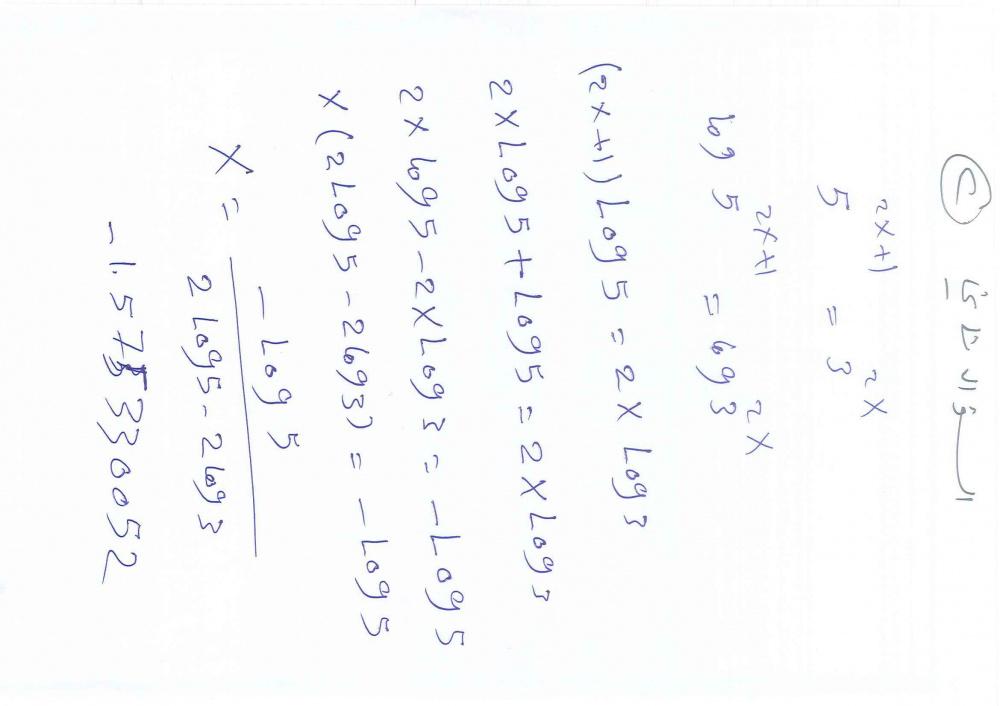 السؤال الثاني C
5^{2x+1} = 3^{2x}
log 5^{2x+1} = log 3^{2x}
(2x+1) Log 5 = 2x Log 3
2x Log 5 + Log 5 = 2x Log 3
2x log 5 - 2x Log 3 = - Log 5
x (2 Log 5 - 2 log 3) = - Log 5
x = - Log 5 / 2 Log 5 - 2 log 3
-1.575330052